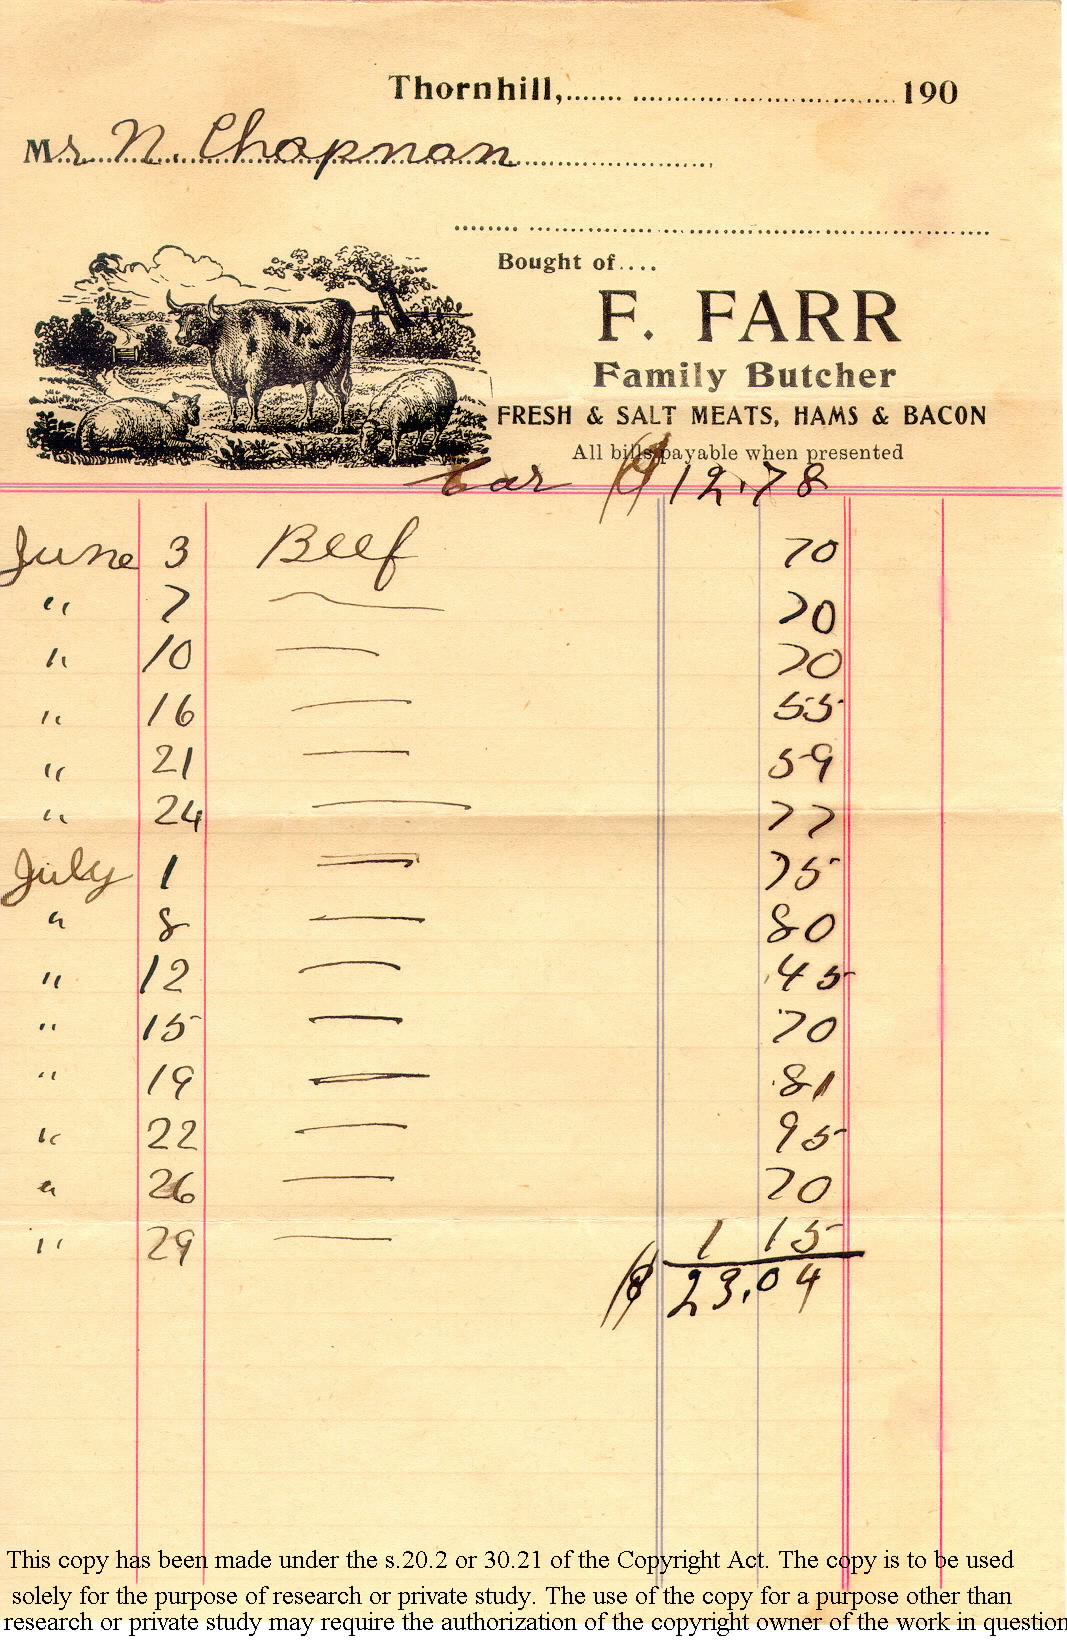 Thornhill, 190
Mr N. Chapman
Bought of....
F. FARR
Family Butcher
FRESH & SALT MEATS, HAMS & BACON
All bills payable when presented
$12.78
June 3 Beef 70
" 7 — 70
" 10 — 70
" 16 — 55
" 21 — 59
" 24 — 77
July 1 — 75
" 8 — 80
" 12 — 45
" 15 — 70
" 19 — 81
" 22 — 95
" 26 — 70
" 29 — 1 15
$23.04
This copy has been made under the s.20.2 or 30.21 of the Copyright Act. The copy is to be used
solely for the purpose of research or private study. The use of the copy for a purpose other than
research or private study may require the authorization of the copyright owner of the work in question